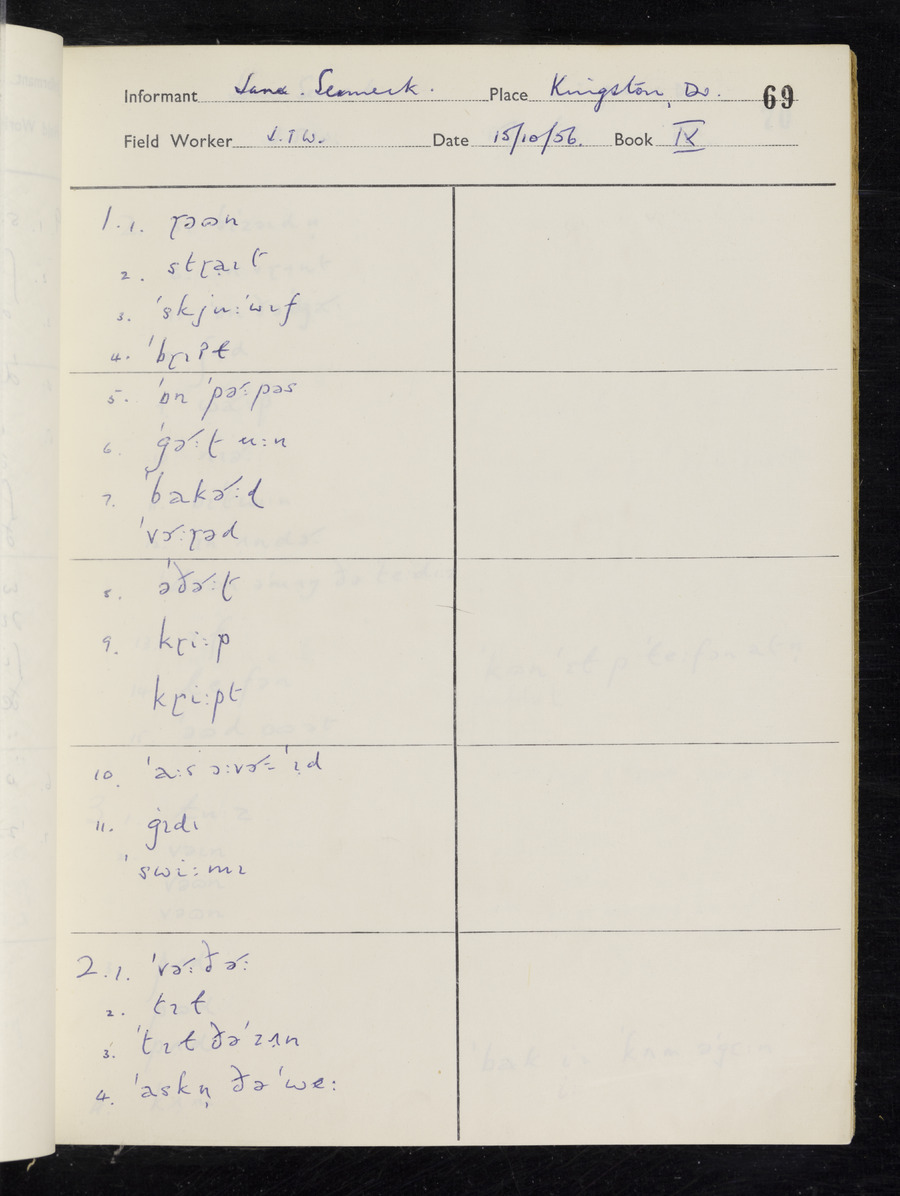 Informant Place Kingston, Do. 69
Field Worker J.T.W. Date 15/10/56. Book IX
1.1. ɽəʊn
2. stɽaɪt
3. ˈskjuːˈwɪf
4. ˈbɽɪʔt
5. ˈɒn ˈpɚːpəs
6. ˈgɚːt uːn
7. ˈbakɚːd
ˈvɔːɽəd
8. əˈðɚːt
9. kɽiːp
kɽiːpt
10. ˈaːs ɔːvɚːˈɪd
11. gɪdɪ
ˈswiːmɪ
2.1. ˈvɚːðɚː
2. tɪt
3. ˈtɪt ðəˈzʌn
4. ˈaskn̩ ðəˈweː